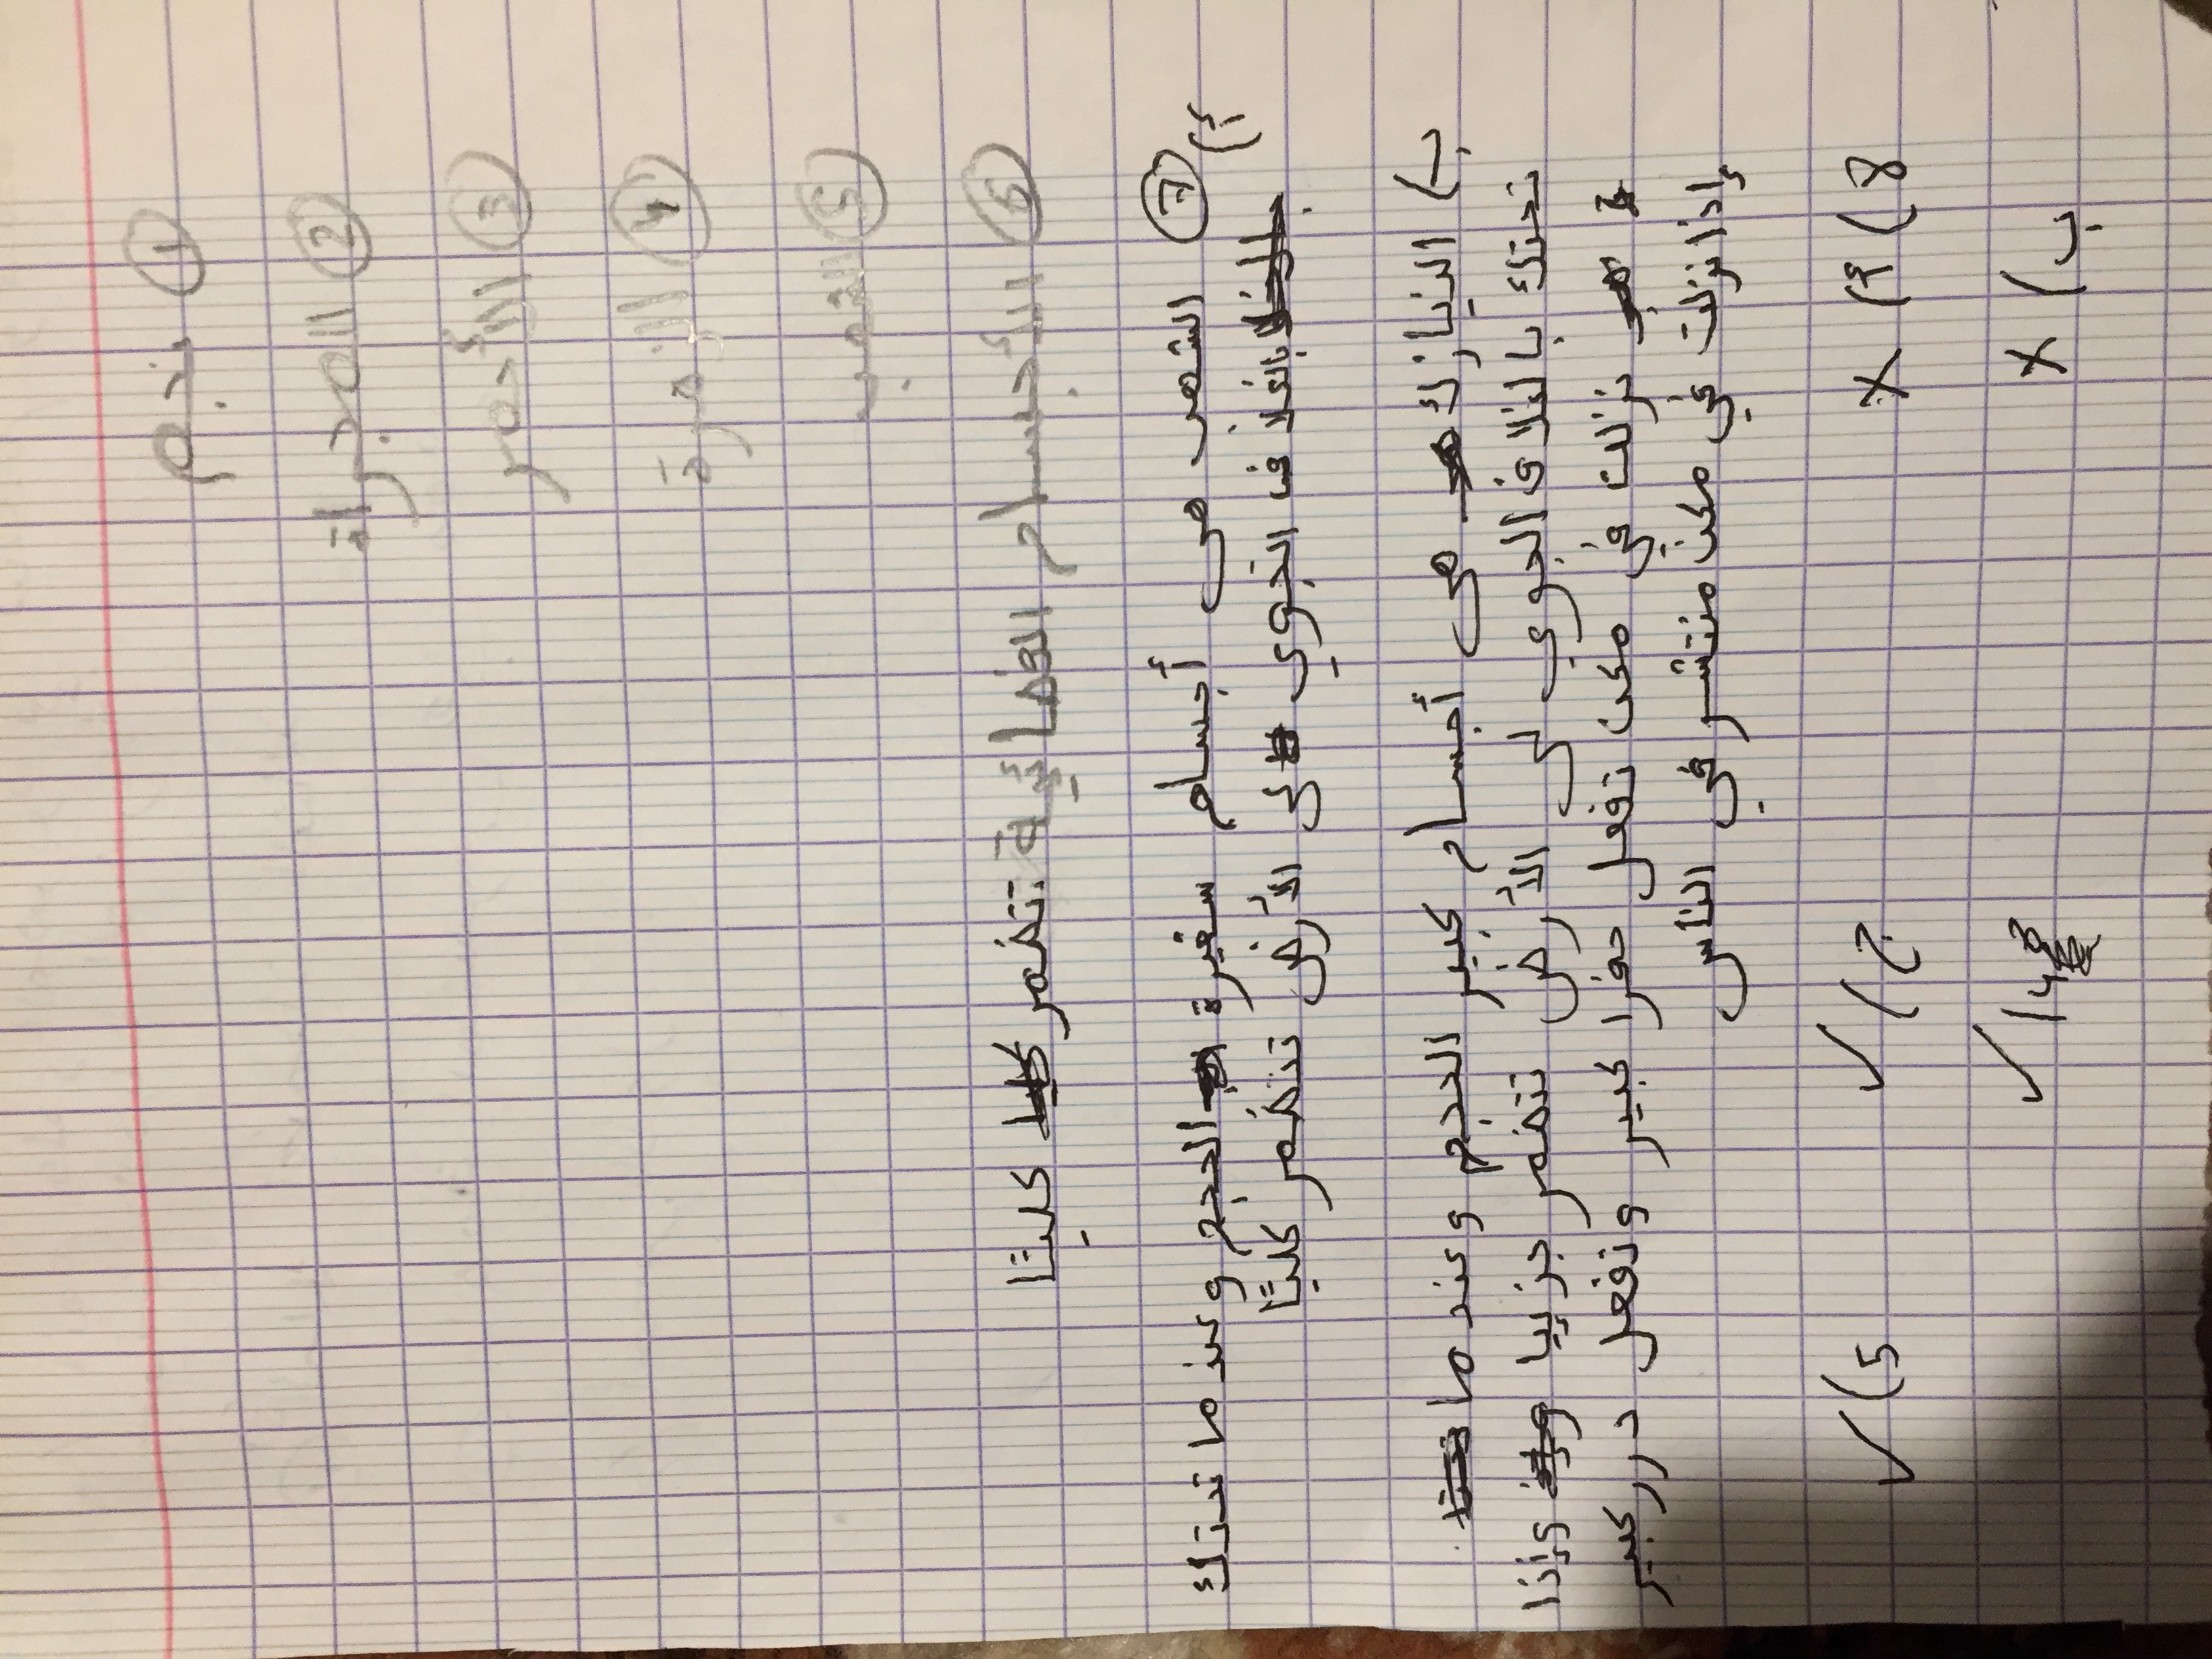 ① نجم
② المجراة
③ الأحمر
④ الزهرة
⑤ الشهب
⑥ الأجسام الفضائية تتضمر كليتا
⑦ أ) الشهب هي أجسام سغيرة الحجم وعند ما تحتك
بالغلاف الجوي لى الأرض تتضمر كليتا
ب) النيازك هي أجسام كبير الحجم وعند ما
تحتك بالغلاف الجوي لى الأرض تتضمر جزييا وإذا
نزلت في مكن تفعل حفرا كبير وتفعل درر كبير
إذا نزلت في مكن منتشر في الناس
8) أ) x ج) ✓ 5) ✓
ب) x 4) ✓